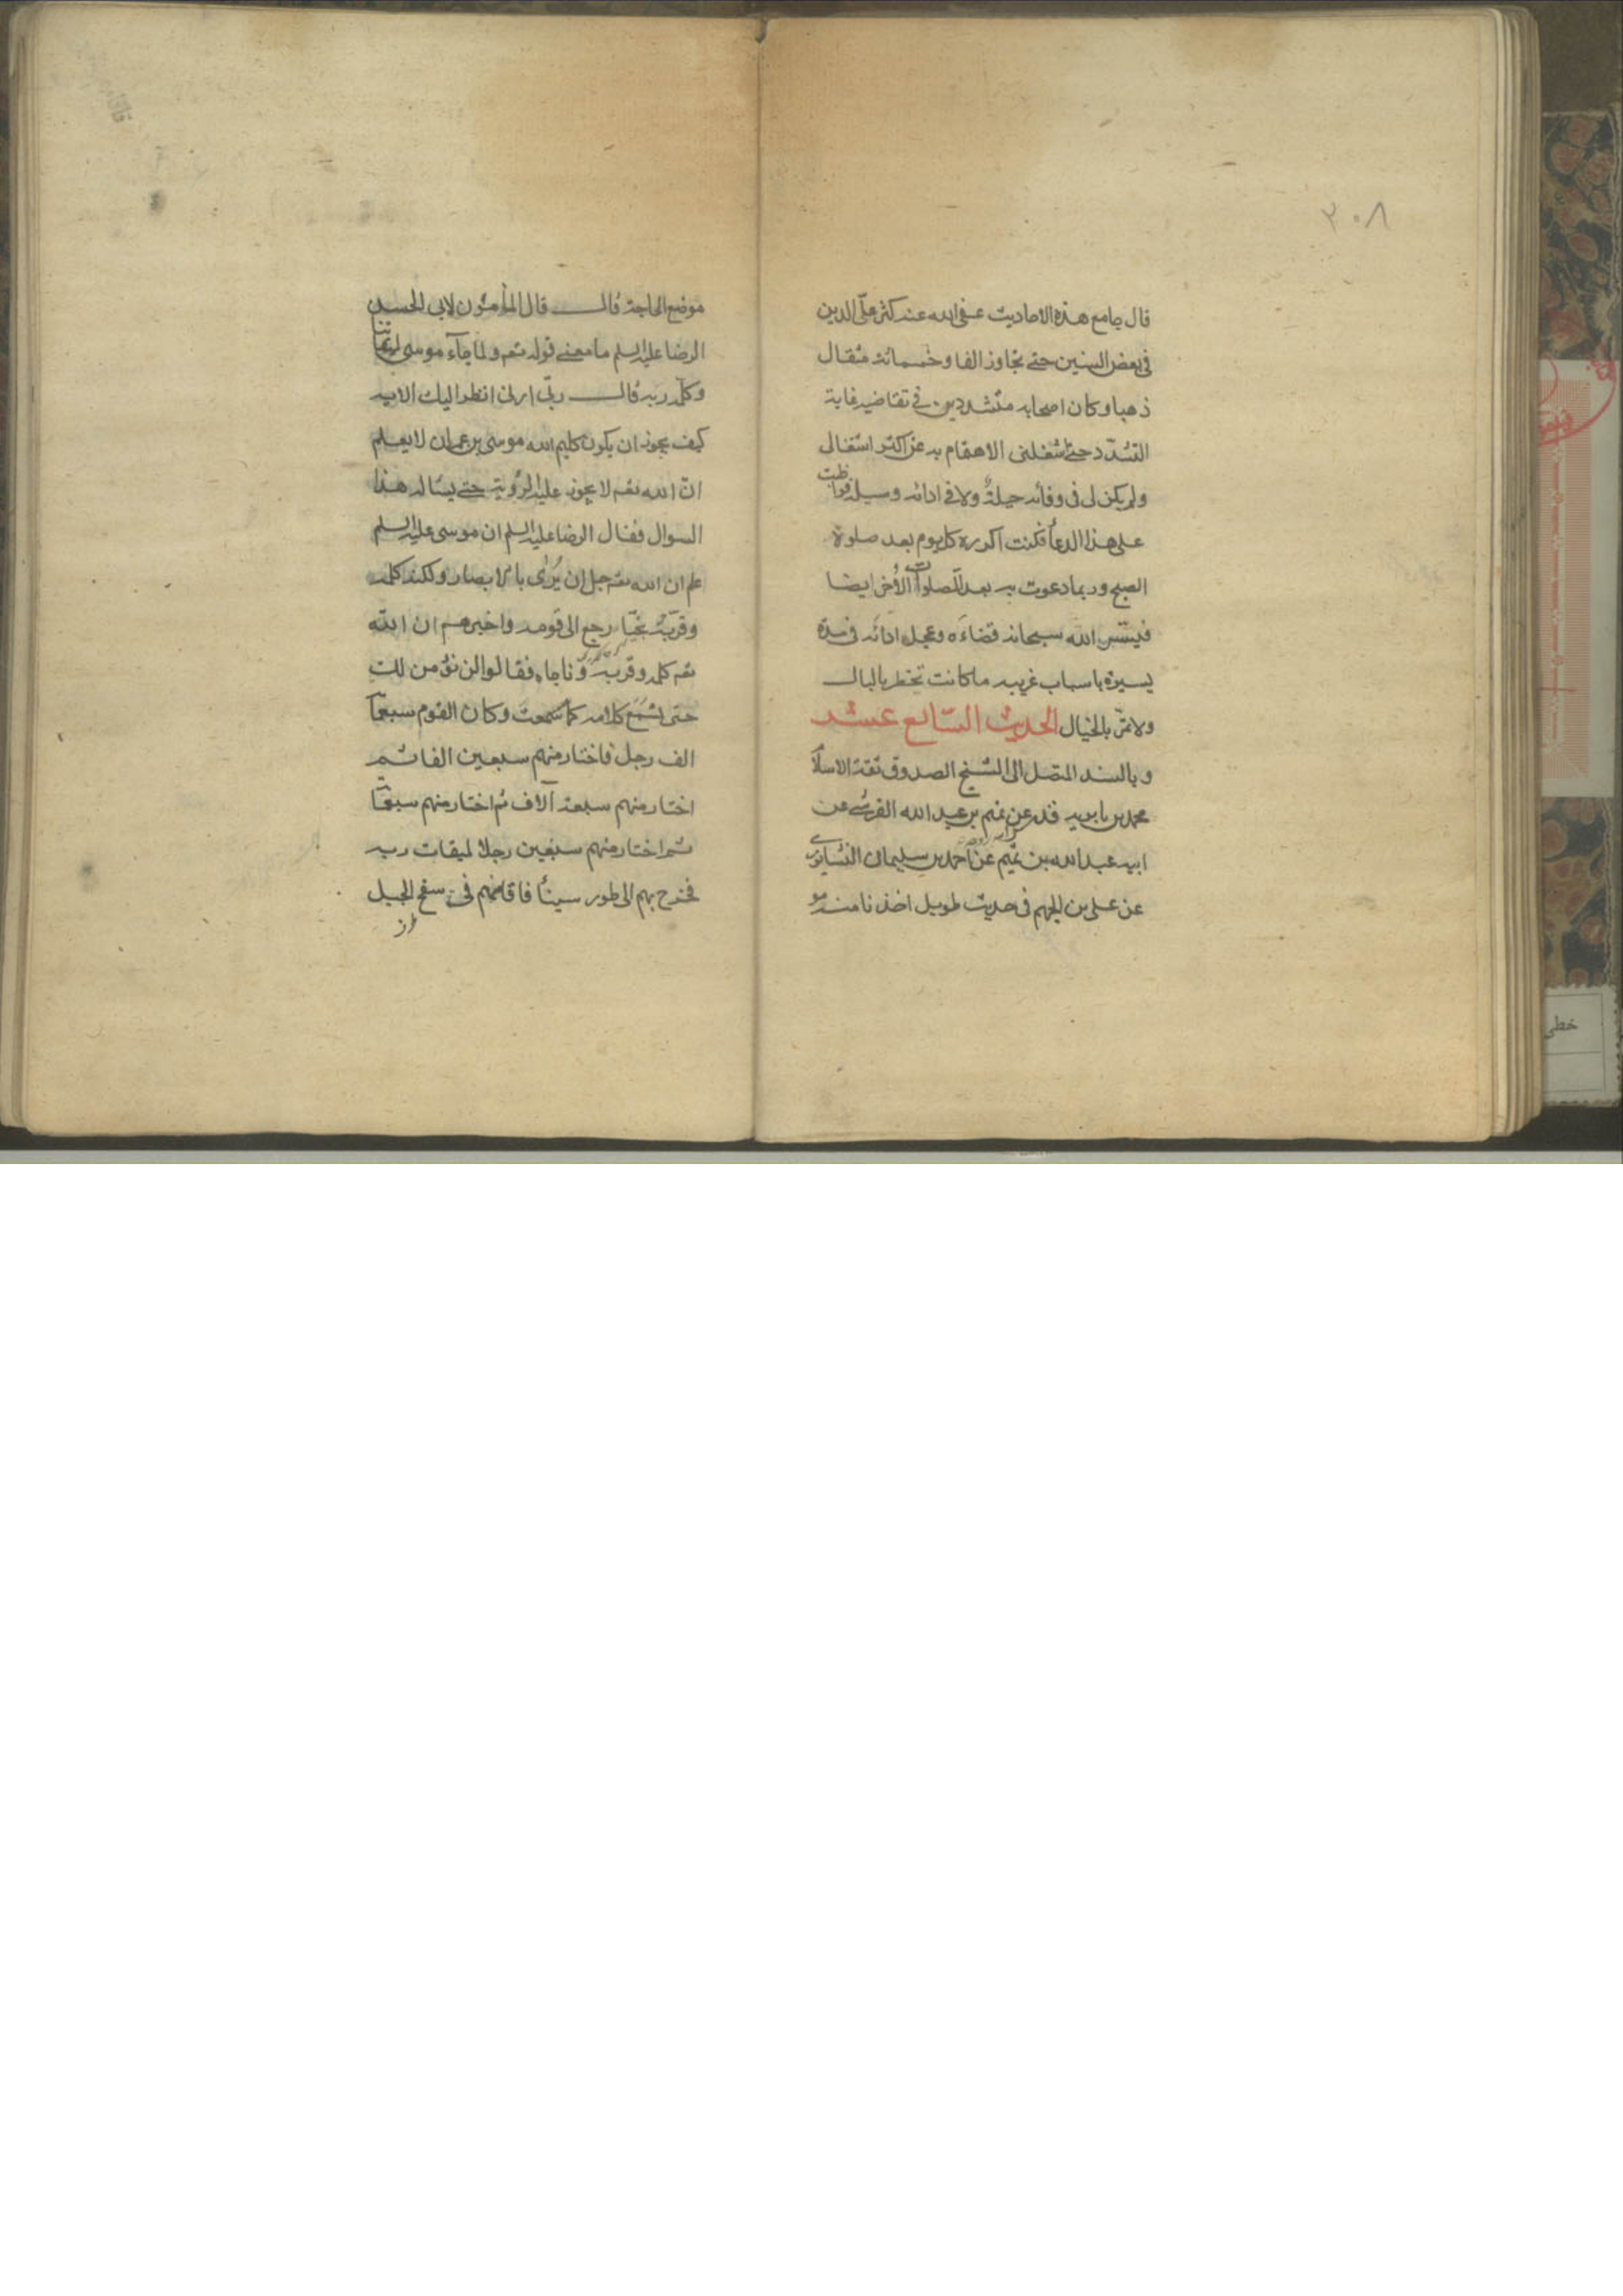 ٣٠٨
قال جامع هذه الاحاديث عفى الله عنه كثر علّى الدين
فى بعض السنين حتى تجاوز الفا و خمسمائة مثقال
ذهبا و كان اصحابه متشددين فى تقاضيه غاية
التشدّد حتى شغلنى الاهتمام به عن اكثر اشغالى
ولم يكن لى فى وفائه حيلة ولا فى ادائه وسيلة فواظبت
على هذا الدعاء فكنت اكرره كل يوم بعد صلوة
الصبح و ربما دعوت به بعد الصلوات الأخر ايضا
فيسّر الله سبحانه قضاءَه و عجل اداءَه فى مدة
يسيرة باسباب غريبه ما كانت تخطر بالبال
ولا تمرّ بالخيال الحديث السابع عشر
و بالسند المتصل الى الشيخ الصدوق ثقة الاسلام
محمد بن بابويه قدر عن تميم بن عبد الله القرشى عن
ابيه عبد الله بن تميم عن احمد بن سليمان النيسابورى
عن على بن الجهم فى حديث طويل اخذنا منه مو
موضع الحاجة قال قال المأمون لابى الحسن
الرضا عليه السلم ما معنى قوله تعه ولما جآء موسى لميقاتنا
وكلّمه ربه قال ربّ ارنى انظر اليك الايه
كيف يجوز ان يكون كليم الله موسى بن عمران لا يعلم
انّ الله تعه لا يجوز عليه الرؤية حتى يسئاله هذا
السوال فقال الرضا عليه السلم ان موسى عليه السلم
علم ان الله تعه جل ان يُرىٰ بالابصار ولكنه كلمه
وقرّبهُ نجيّا رجع الى قومه واخبرهم ان الله
تعه كلمه وقربه وناجاه فقالوا لن نؤمن لك
حتى نَسْمَع كلامه كما سمعتَ وكان القوم سبعمآ
الف رجل فاختار منهم سبعين الفا ثم
اختار منهم سبعة آلاف ثم اختار منهم سبعمآ
ثم اختار منهم سبعين رجلا لميقات ربه
فخرج بهم الى طور سيناء فاقامهم فى سفح الجبل
خطى